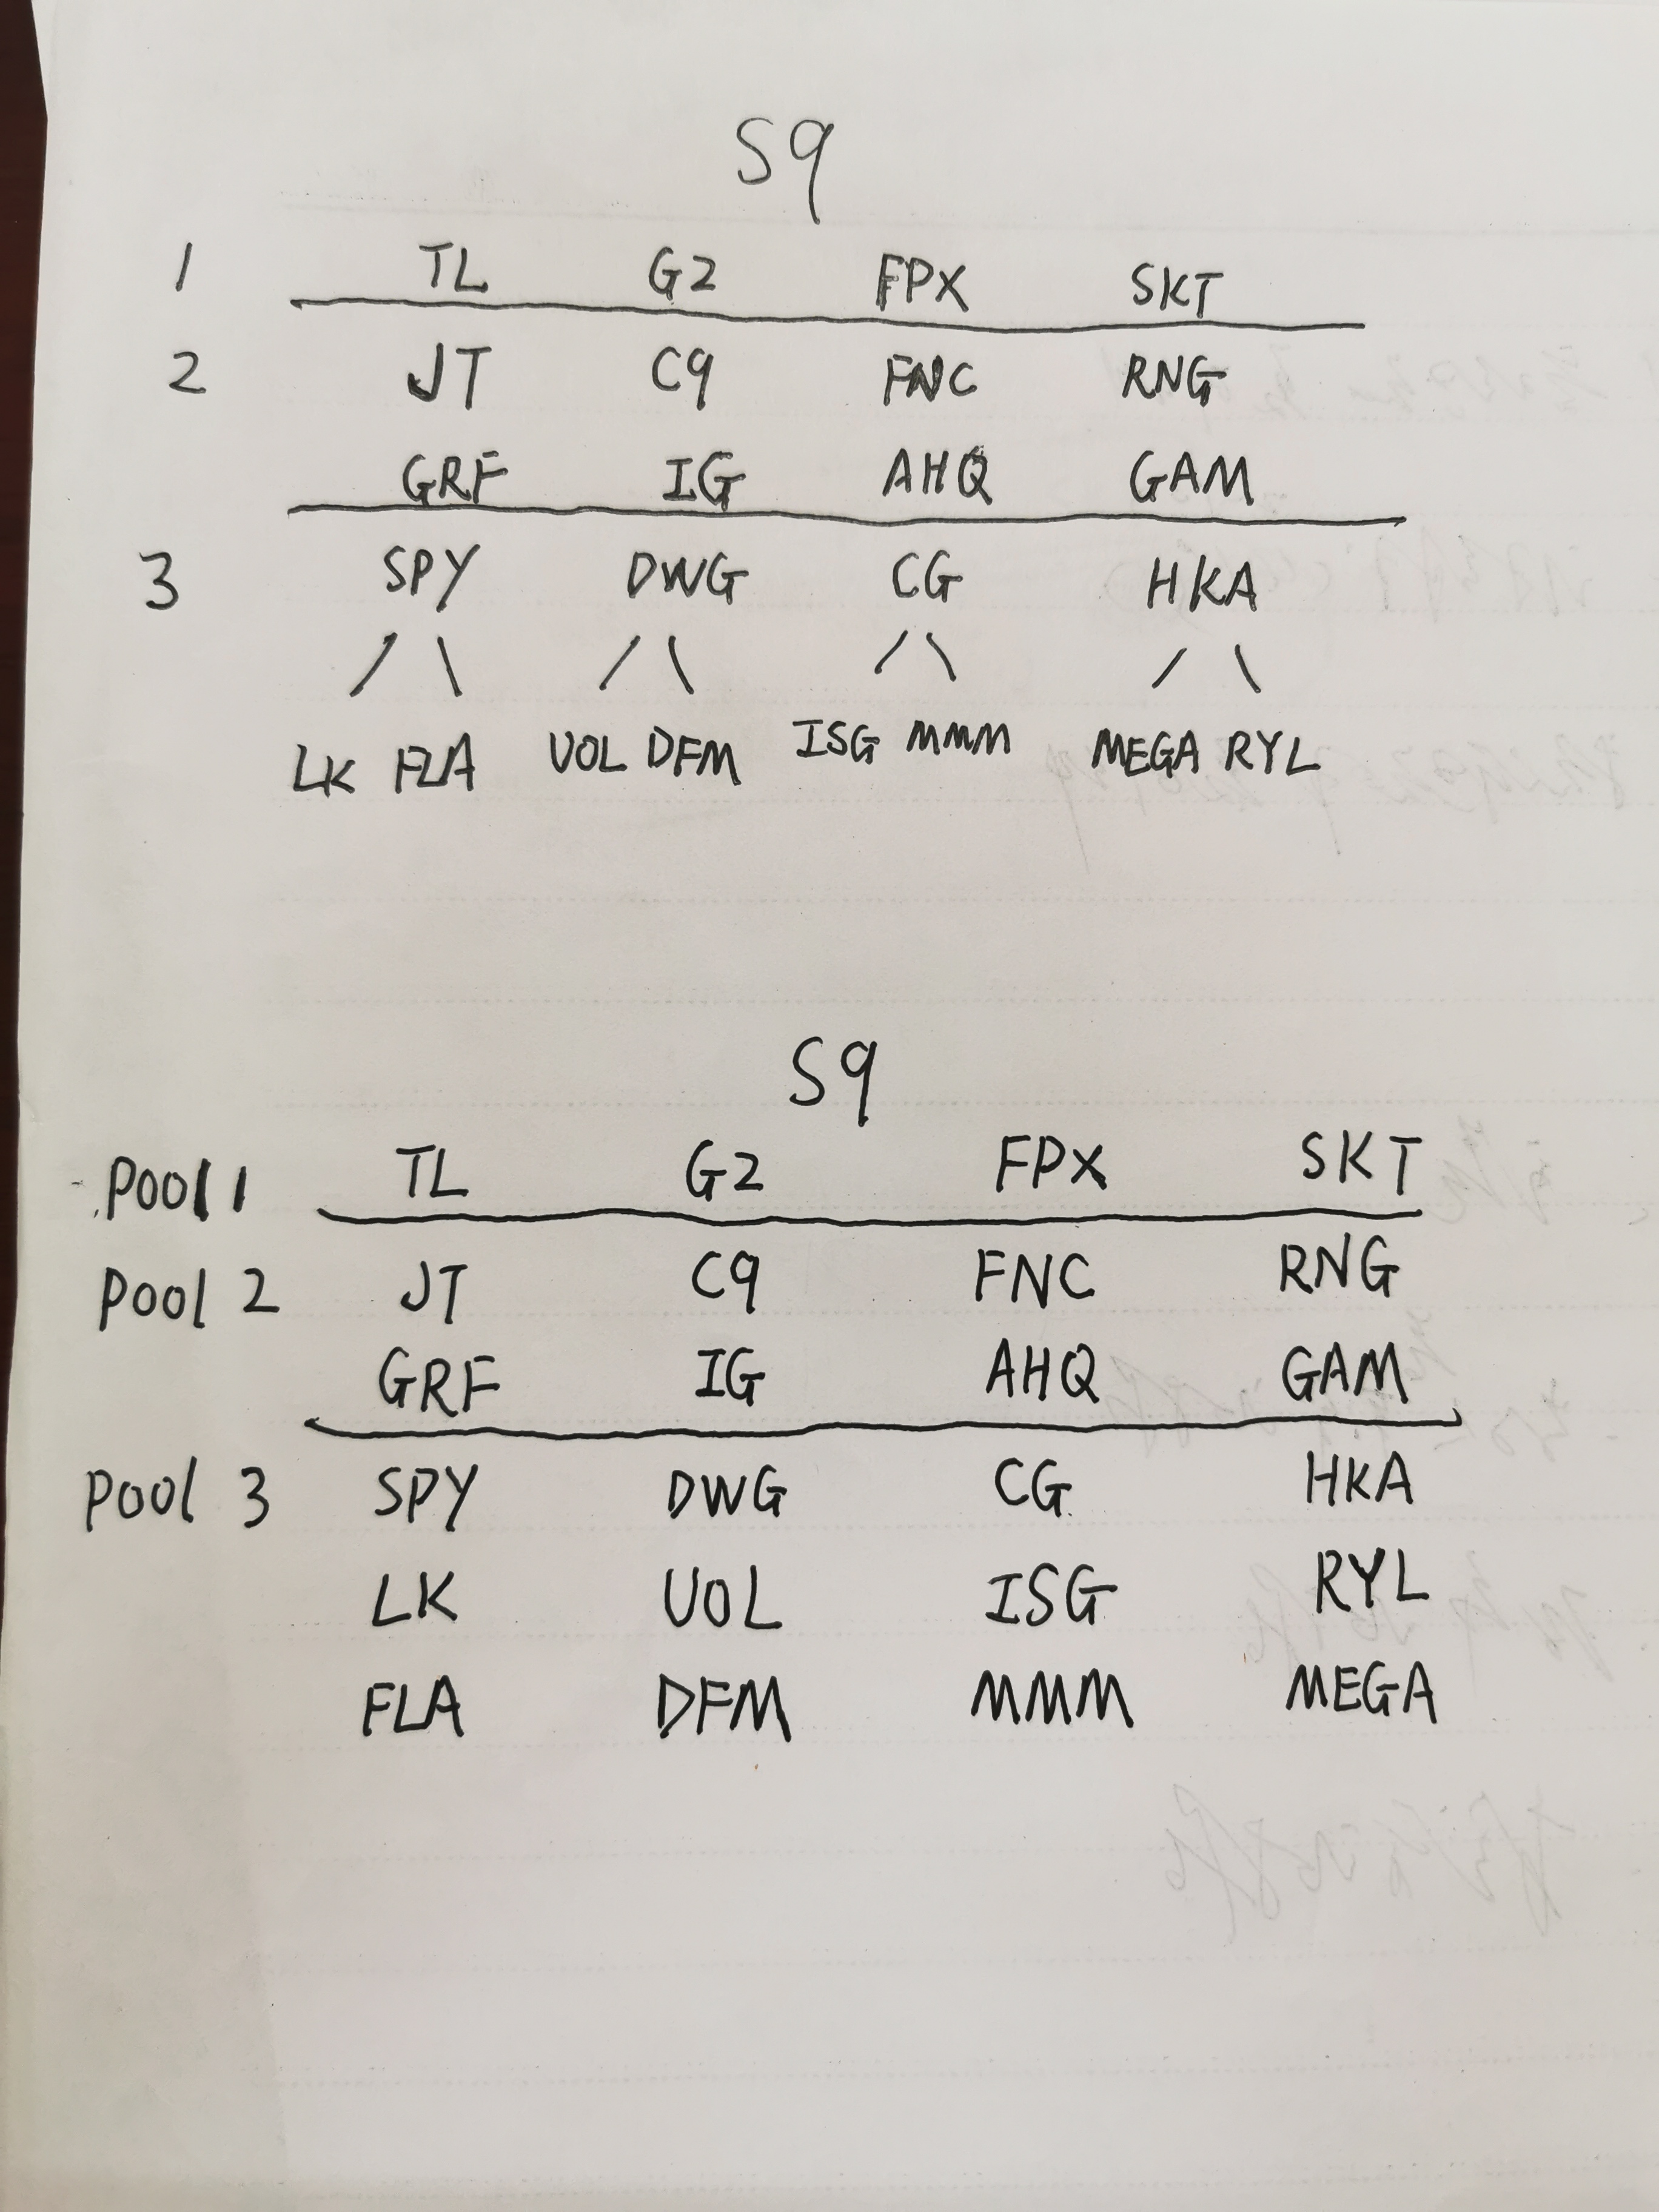 S9
1 TL G2 FPX SKT
2 JT C9 FNC RNG
GRF IG AHQ GAM
3 SPY DWG CG HKA
LK FLA VOL DFM ISG MMM MEGA RYL
S9
Pool 1 TL G2 FPX SKT
Pool 2 JT C9 FNC RNG
GRF IG AHQ GAM
Pool 3 SPY DWG CG HKA
LK UOL ISG RYL
FLA DFM MMM MEGA